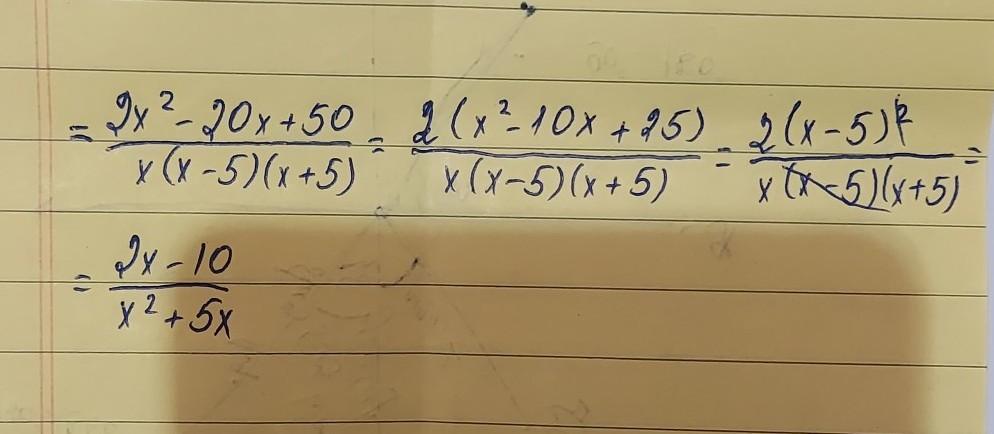 = \frac{2x^2 - 20x + 50}{x(x-5)(x+5)} = \frac{2(x^2 - 10x + 25)}{x(x-5)(x+5)} = \frac{2(x-5)^2}{x(x-5)(x+5)} =
= \frac{2x - 10}{x^2 + 5x}